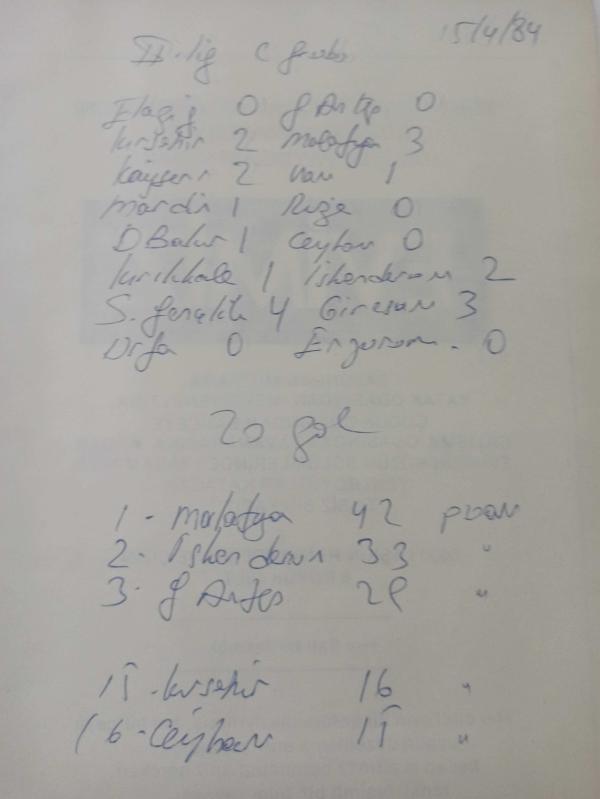 15/4/84
II. lig C grubu
Elazığ 0 G Antep 0
Kırşehir 2 Malatya 3
Kayseri 2 Van 1
Mardin 1 Rize 0
D Bakır 1 Ceyhan 0
Kırıkkale 1 İskenderun 2
S. Gençlik 4 Giresun 3
Urfa 0 Erzurum. 0
20 gol
1 - Malatya 42 puan
2 - İskenderun 33 "
3 - G Antep 29 "
15 - Kırşehir 16 "
16 - Ceyhan 15 "